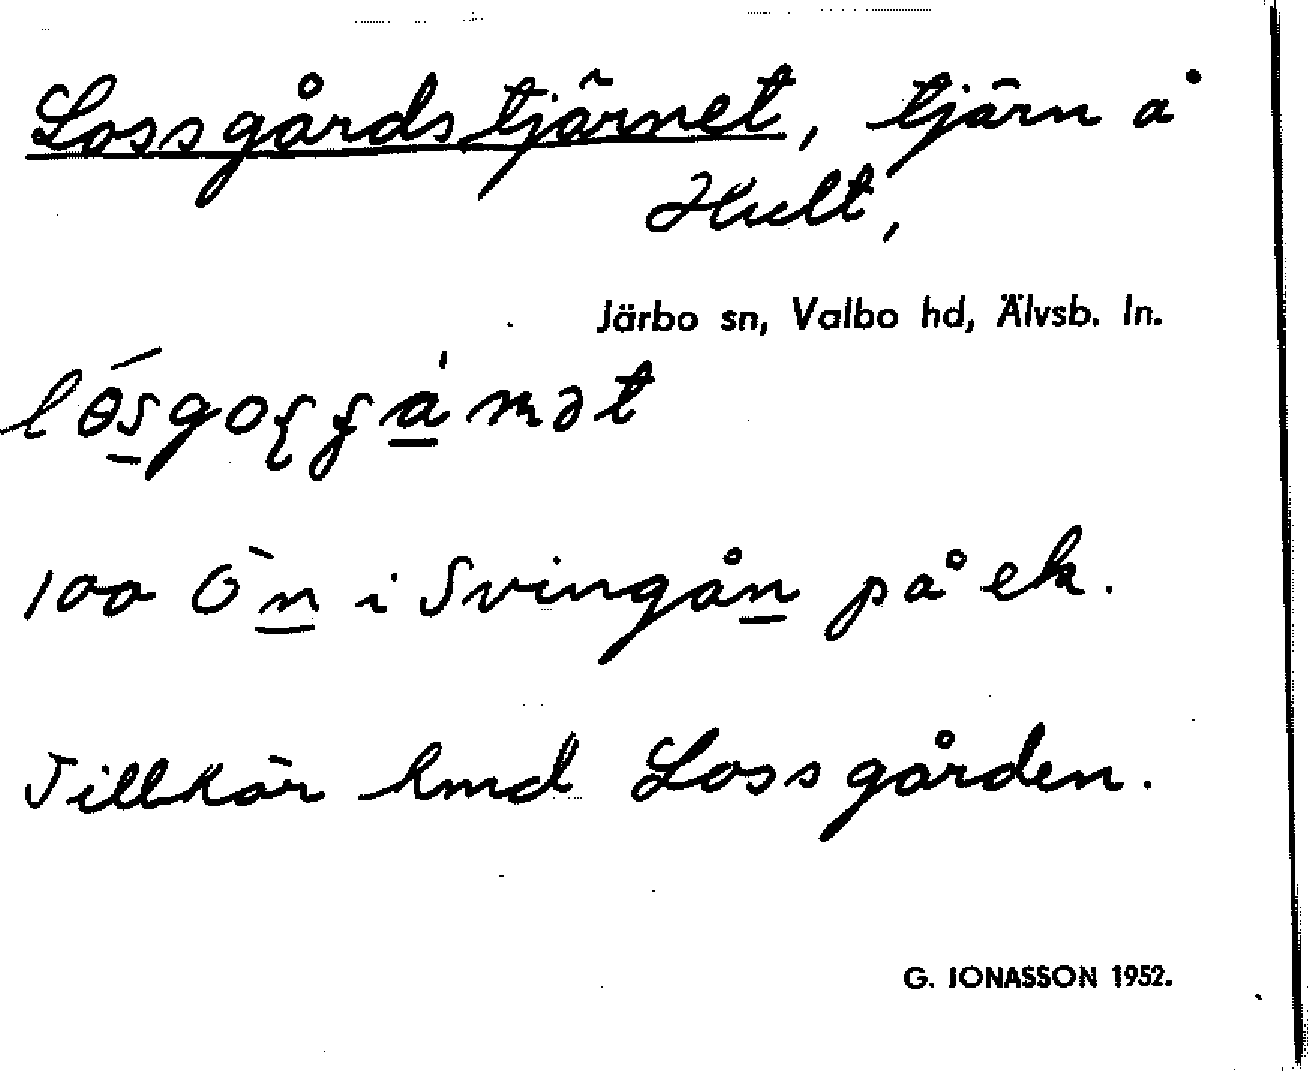 Lossgårdstjärnet, tjärn å
Hult,
Järbo sn, Valbo hd, Älvsb. ln.
100 Ö n i Svingån på ek.
Tillhör hmd Lossgården.
G. JONASSON 1952.